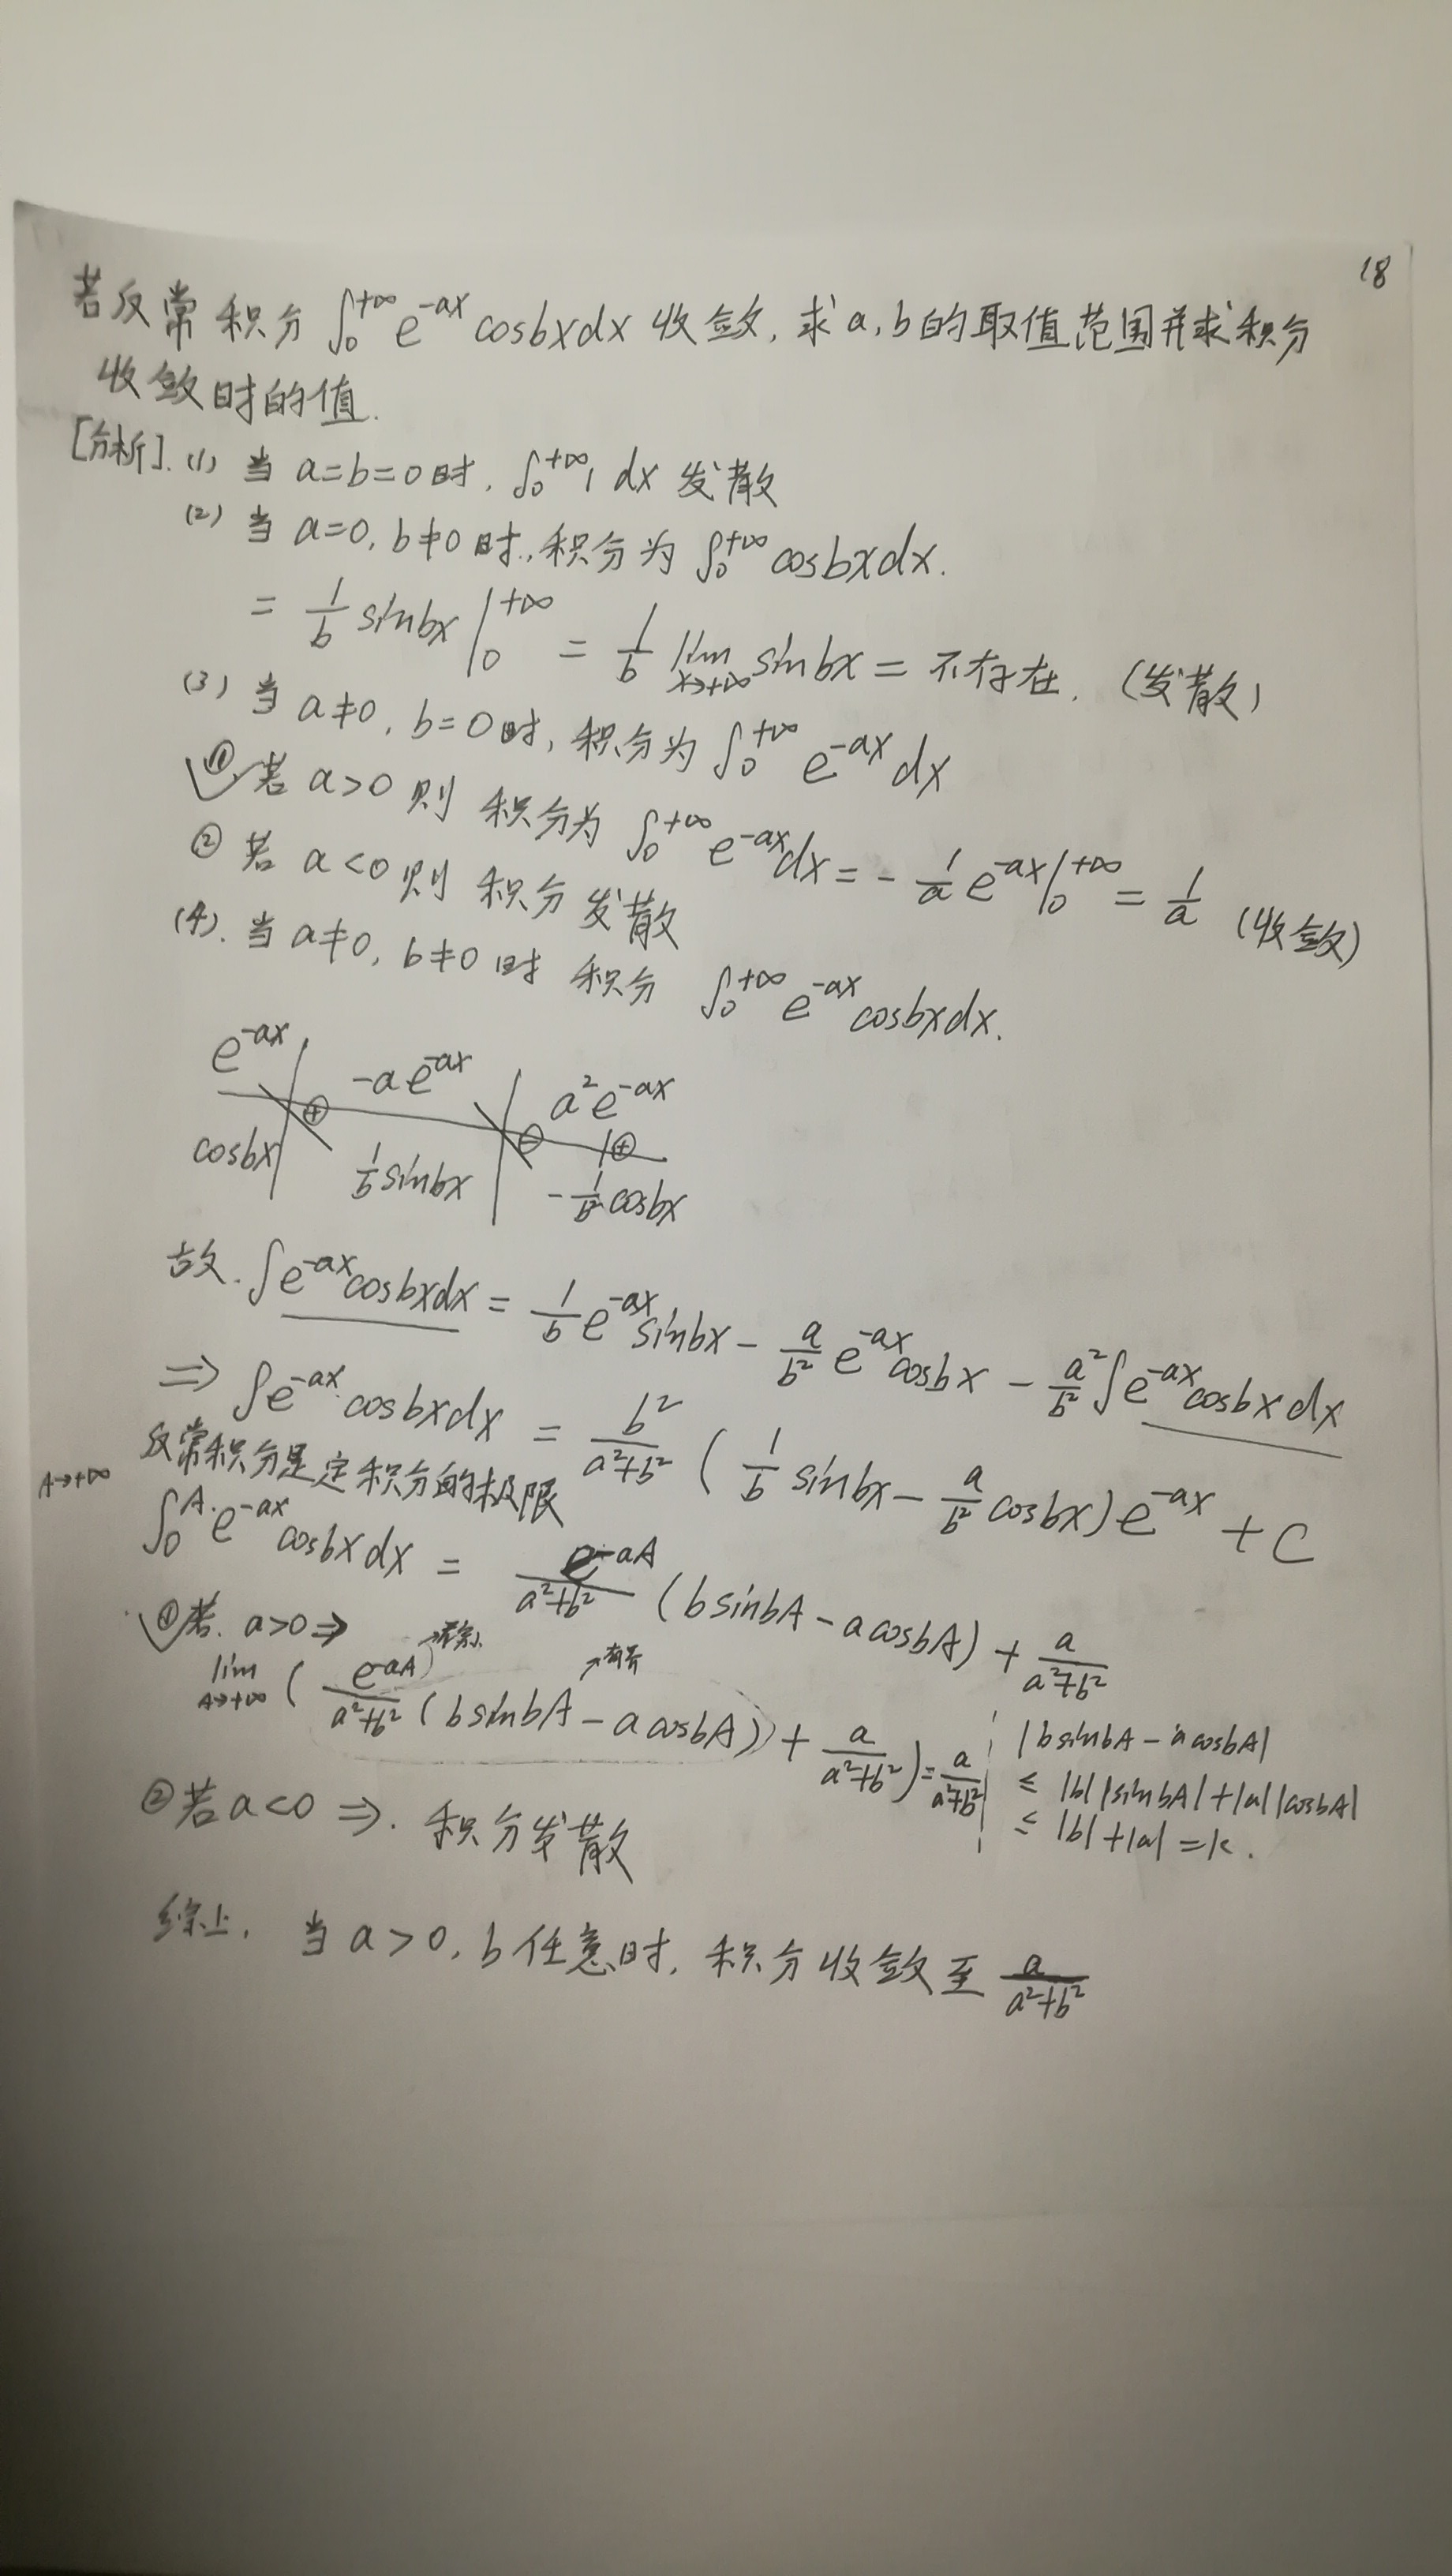 18
若反常积分 ∫₀^{+∞} e^{-ax} cosbx dx 收敛, 求 a, b 的取值范围并求积分
收敛时的值.
[分析]. (1) 当 a=b=0时, ∫₀^{+∞} 1 dx 发散
(2) 当 a=0, b≠0 时, 积分为 ∫₀^{+∞} cosbx dx.
= 1/b sinbx |₀^{+∞} = 1/b lim_{x→+∞} sinbx = 不存在. (发散)
(3) 当 a≠0, b=0时, 积分为 ∫₀^{+∞} e^{-ax} dx
① 若 a>0 则 积分为 ∫₀^{+∞} e^{-ax} dx = - 1/a e^{-ax} |₀^{+∞} = 1/a (收敛)
② 若 a<0 则 积分发散
(4). 当 a≠0, b≠0 时 积分 ∫₀^{+∞} e^{-ax} cosbx dx.
e^{-ax} -ae^{-ax} a²e^{-ax}
⊕ ⊖ ⊕
cosbx 1/b sinbx - 1/b² cosbx
故. ∫e^{-ax} cosbx dx = 1/b e^{-ax} sinbx - a/b² e^{-ax} cosbx - a²/b² ∫e^{-ax} cosbx dx
⇒ ∫e^{-ax} cosbx dx = b²/(a²+b²) ( 1/b sinbx - a/b² cosbx ) e^{-ax} + C
反常积分是定积分的极限
A→+∞
∫₀^A e^{-ax} cosbx dx = e^{-aA}/(a²+b²) (b sinbA - a cosbA) + a/(a²+b²)
① 若. a>0 ⇒
→无穷小
→有界
lim_{A→+∞} ( e^{-aA}/(a²+b²) (b sinbA - a cosbA) + a/(a²+b²) ) = a/(a²+b²)
|b sinbA - a cosbA|
≤ |b||sinbA|+|a||cosbA|
≤ |b|+|a| = k.
② 若 a<0 ⇒. 积分发散
综上, 当 a>0, b 任意时, 积分收敛至 a/(a²+b²)